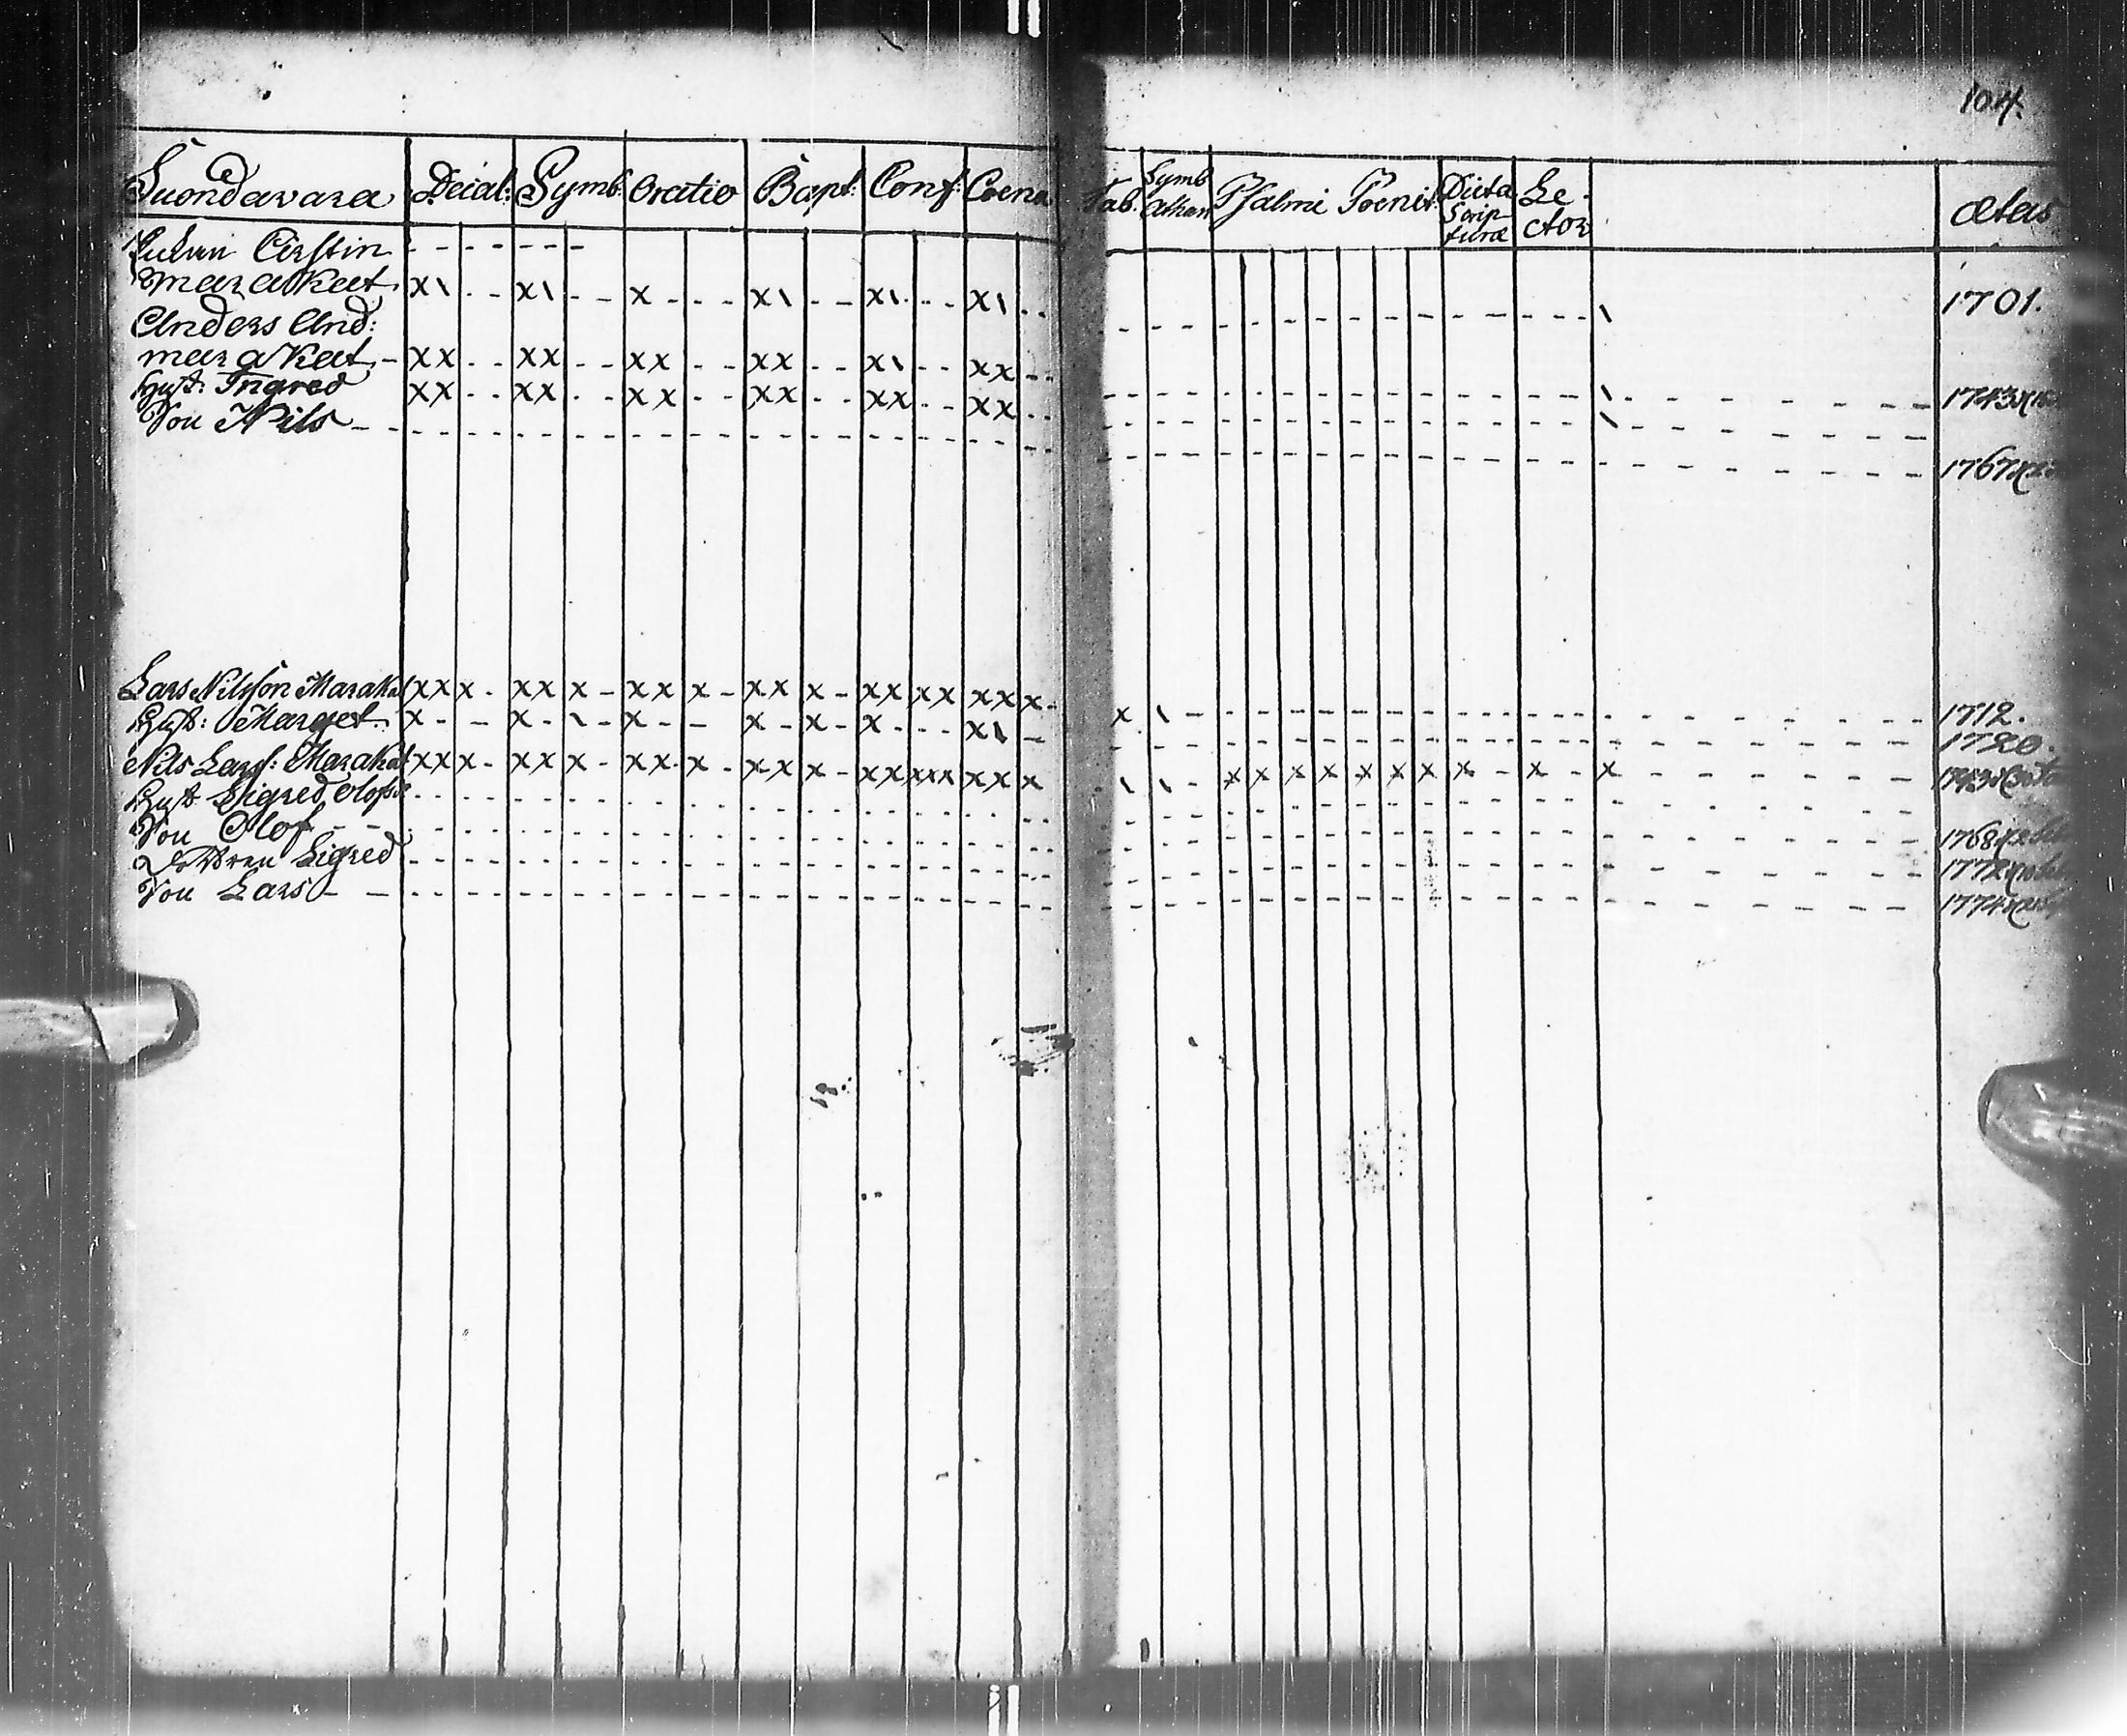 104.
Suondavara Decal: Symb: Oratio Bapt: Conf: Coena Tab. Symb Athan Psalmi Poenit: Dicta Scrip- turæ Le- ctor ætas
Cirstin
marakat x\ x\ x x\ x\ x\ 1701.
Anders And:
marakat xx xx xx xx x\ xx
Hust: Ingred xx xx xx xx xx xx 1743
Son Nils 1767
Lars Nilsson Marakat xx x xx x xx x xx x xx xx xx x x \ 1712.
Hust: Marget x x \ x x x x x\ 1720.
Nils Larss: Marakat xx x xx x xx x xx x xx xxx xx x \ \ x x x x x x x x x x 1743
Hust Sigred Olofsd
Son Olof 1768
Dottren Sigred 1772
Son Lars 1774